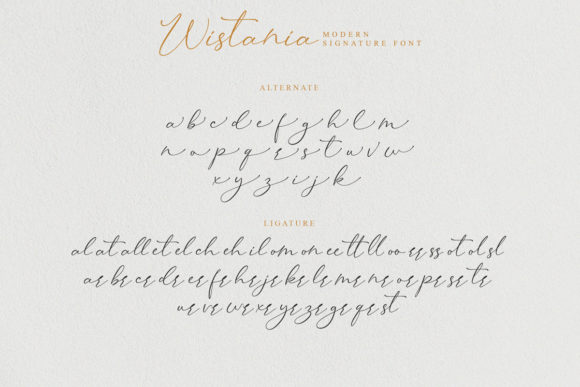 Wistania
MODERN
SIGNATURE FONT
ALTERNATE
a b c d e f g h l m
n o p q r s t u v w
x y z i j k
LIGATURE
al at all et el ch eh il om on ee tt ll oo rr ss ot ol sl
ar br cr dr er fr hr jr kr lr mr nr or pr sr tr
ur vr wr xr yr zr gr qr st